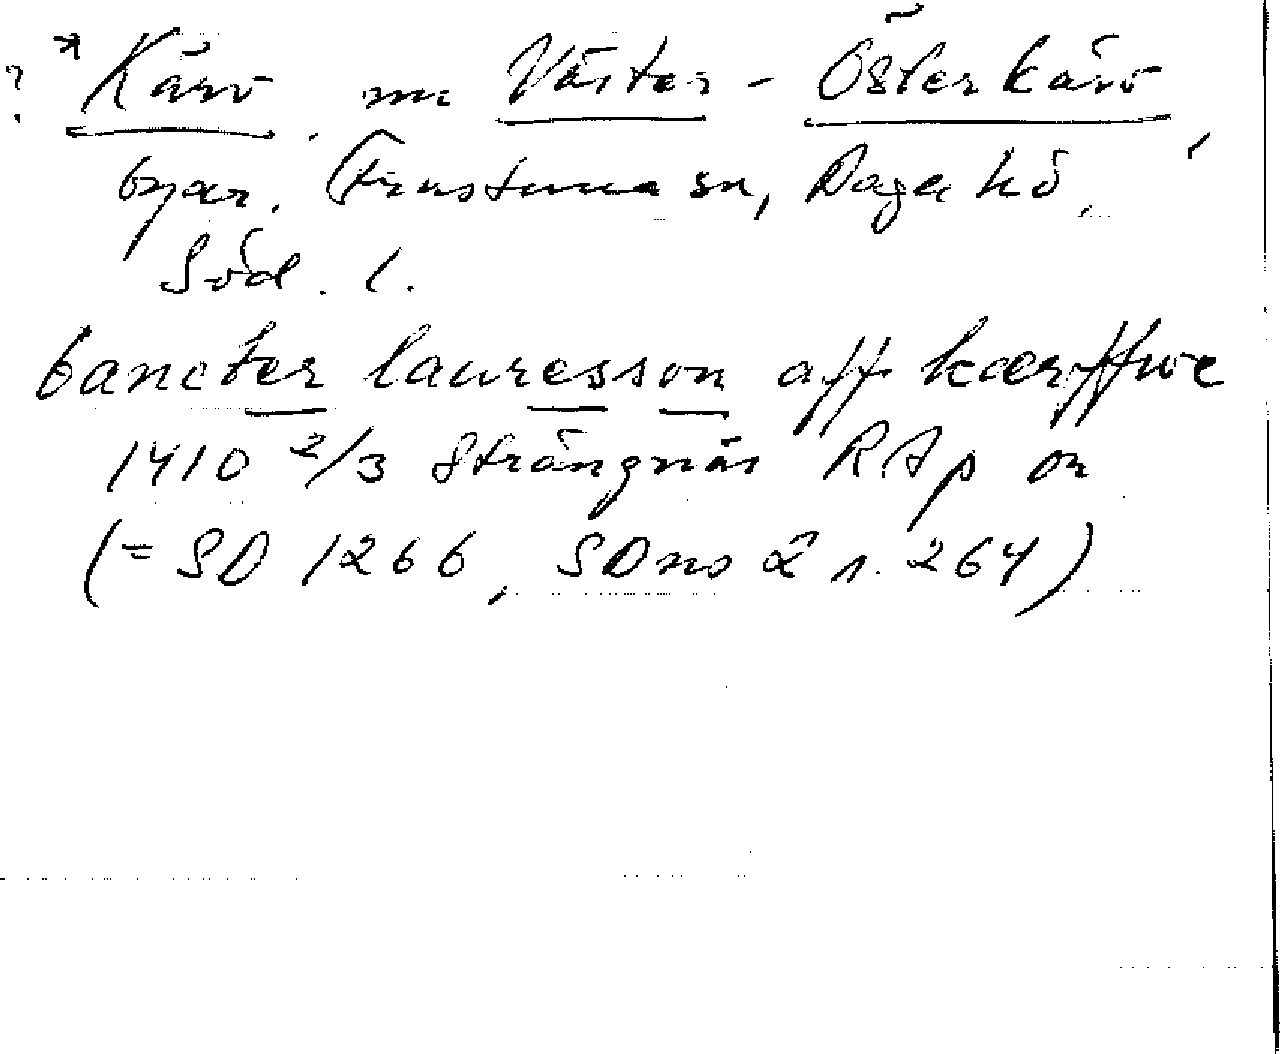 ? *Kärv nu Väster- Österkärv,
byar, Frustuna sn, Daga hd,
Söd. l.
bancter lauresson aff kærffwe
1410 2/3 Strängnäs RAp or
(= SD 1266, SDns 2 s. 264)